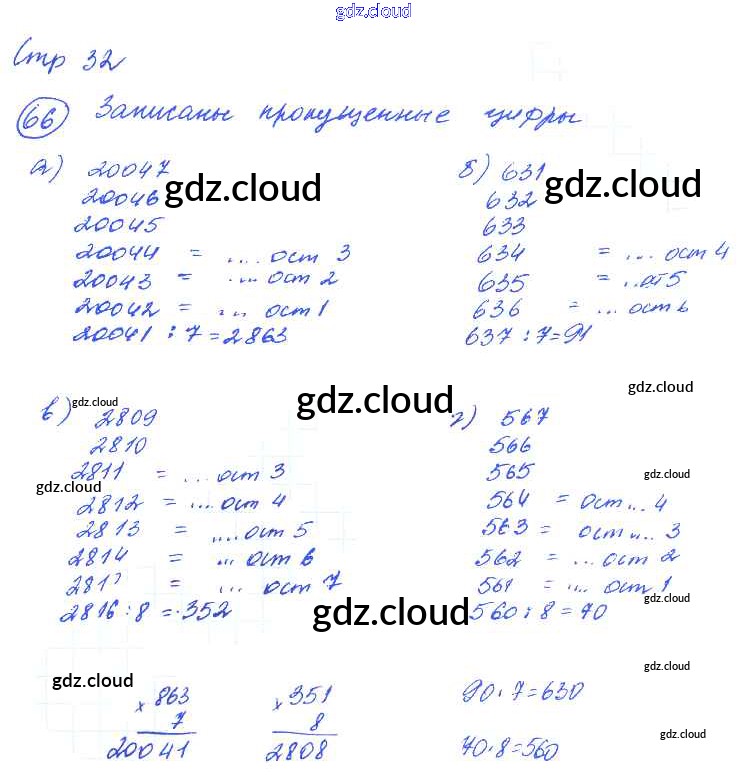 gdz.cloud
Стр 32
66 Записаны пропущенные цифры
а) 20047
20046
20045
20044 = .... ост 3
20043 = .... ост 2
20042 = ... ост 1
20041 : 7 = 2863
gdz.cloud
б) 631
632
633
634 = ... ост 4
635 = ... ост 5
636 = ... ост 6
637 : 7 = 91
gdz.cloud
gdz.cloud
в) 2809
2810
2811 = ... ост 3
2812 = .... ост 4
2813 = .... ост 5
2814 = ... ост 6
281 = ... ост 7
2816 : 8 = 352
gdz.cloud
gdz.cloud
gdz.cloud
г) 567
566
565
564 = ост... 4
563 = ост ... 3
562 = ... ост 2
561 = ... ост 1
560 : 8 = 70
gdz.cloud
gdz.cloud
gdz.cloud
gdz.cloud
х 863
7
20041
х 351
8
2808
90 · 7 = 630
70 · 8 = 560
gdz.cloud
gdz.cloud